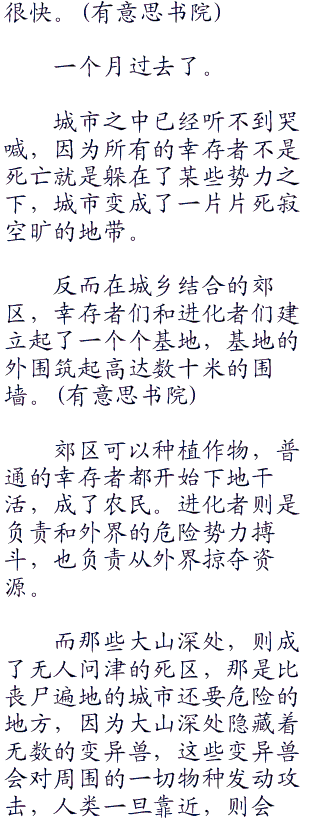 很快。(有意思书院)
一个月过去了。
城市之中已经听不到哭
喊，因为所有的幸存者不是
死亡就是躲在了某些势力之
下，城市变成了一片片死寂
空旷的地带。
反而在城乡结合的郊
区，幸存者们和进化者们建
立起了一个个基地，基地的
外围筑起高达数十米的围
墙。(有意思书院)
郊区可以种植作物，普
通的幸存者都开始下地干
活，成了农民。进化者则是
负责和外界的危险势力搏
斗，也负责从外界掠夺资
源。
而那些大山深处，则成
了无人问津的死区，那是比
丧尸遍地的城市还要危险的
地方，因为大山深处隐藏着
无数的变异兽，这些变异兽
会对周围的一切物种发动攻
击，人类一旦靠近，则会